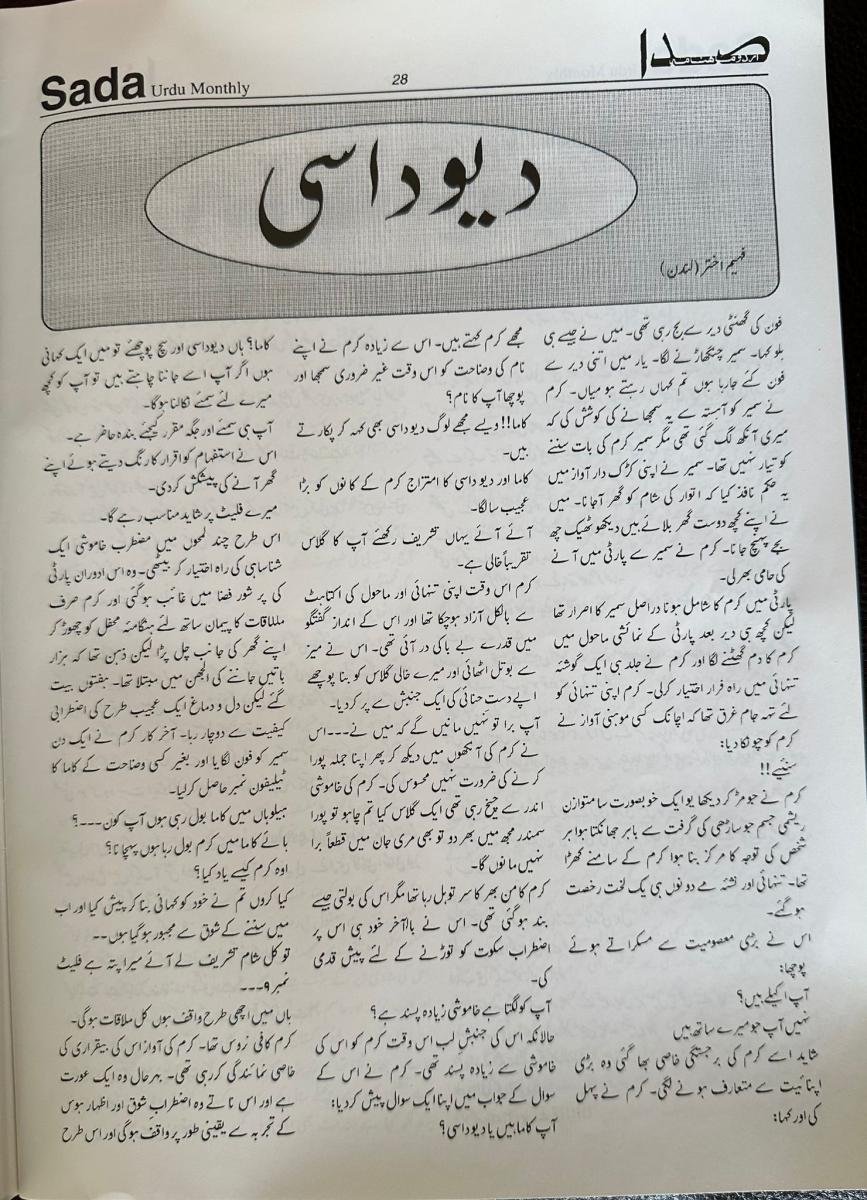 Sada Urdu Monthly
28
صدا
اردو ماهنامه
دیوداسی
فہیم اختر (لندن)
فون کی گھنٹی دیر سے بج رہی تھی۔ میں نے جیسے ہی
ہلو کہا۔ سمیر چنگھاڑنے لگا۔ یار میں اتنی دیر سے
فون کئے جارہا ہوں تم کہاں رہتے ہو میاں۔ کرم
نے سمیر کو آہستہ سے یہ سمجھانے کی کوشش کی کہ
میری آنکھ لگ گئی تھی مگر سمیر کرم کی بات سننے
کو تیار نہیں تھا۔ سمیر نے اپنی کڑک دار آواز میں
یہ حکم نافذ کیا کہ اتوار کی شام کو گھر آجانا۔ میں
نے اپنے کچھ دوست گھر بلائے ہیں دیکھو ٹھیک چھ
بجے پہنچ جانا۔ کرم نے سمیر سے پارٹی میں آنے
کی حامی بھرلی۔
پارٹی میں کرم کا شامل ہونا دراصل سمیر کا اصرار تھا
لیکن کچھ ہی دیر بعد پارٹی کے نمائشی ماحول میں
کرم کا دم گھٹنے لگا اور کرم نے جلد ہی ایک گوشئہ
تنہائی میں راہ فرار اختیار کرلی۔ کرم اپنی تنہائی کو
لئے تہہ جام غرق تھا کہ اچانک کسی موہنی آواز نے
کرم کو چونکا دیا:
سنئیے!!
کرم نے جو مڑ کر دیکھا یو ایک خوبصورت سا متوازن
ریشمی جسم جو ساڑھی کی گرفت سے باہر جھانکتا ہوا ہر
شخص کی توجہ کا مرکز بنا ہوا کرم کے سامنے کھڑا
تھا۔ تنہائی اور نشہ مے دونوں ہی یک لخت رخصت
ہو گئے۔
اس نے بڑی معصومیت سے مسکراتے ہوئے
پوچھا:
آپ اکیلے ہیں؟
نہیں آپ جو میرے ساتھ ہیں
شاید اسے کرم کی برجستگی خاصی بھا گئی وہ بڑی
اپنائیت سے متعارف ہونے لگی۔ کرم نے پہل
کی اور کہا:
مجھے کرم کہتے ہیں۔ اس سے زیادہ کرم نے اپنے
نام کی وضاحت کو اس وقت غیر ضروری سمجھا اور
پوچھا آپ کا نام؟
کاما!! ویسے مجھے لوگ دیوداسی بھی کہہ کر پکارتے
ہیں۔
کاما اور دیوداسی کا امتزاج کرم کے کانوں کو بڑا
عجیب سا لگا۔
آئے آئے یہاں تشریف رکھئے آپ کا گلاس
تقریباً خالی ہے۔
کرم اس وقت اپنی تنہائی اور ماحول کی اکتاہٹ
سے بالکل آزاد ہوچکا تھا اور اس کے انداز گفتگو
میں قدرے بے باکی در آئی تھی۔ اس نے میز
سے بوتل اٹھائی اور میرے خالی گلاس کو بنا پوچھے
اپے دست حنائی کی ایک جنبش سے پر کردیا۔
آپ برا تو نہیں مانیں گے کہ میں نے۔۔۔اس
نے کرم کی آنکھوں میں دیکھ کر پھر اپنا جملہ پورا
کرنے کی ضرورت نہیں محسوس کی۔ کرم کی خاموشی
اندر سے چیخ رہی تھی ایک گلاس کیا تم چاہو تو پورا
سمندر مجھ میں بھر دو تو بھی مری جان میں قطعاً برا
نہیں مانوں گا۔
کرم کا من بھر کا سر تو ہل رہا تھا مگر اس کی بولتی جیسے
بند ہو گئی تھی۔ اس نے بالآخر خود ہی اس پر
اضطراب سکوت کو توڑنے کے لئے پیش قدمی
کی۔
آپ کو لگتا ہے خاموشی زیادہ پسند ہے؟
حالانکہ اس کی جنبشِ لب اس وقت کرم کو اس کی
خاموشی سے زیادہ پسند تھی۔ کرم نے اس کے
سوال کے جواب میں اپنا ایک سوال پیش کر دیا:
آپ کاما ہیں یا دیوداسی؟
کاما؟ ہاں دیوداسی اور سچ پوچھئے تو میں ایک کہانی
ہوں اگر آپ اسے جاننا چاہتے ہیں تو آپ کو کچھ
میرے لئے سمئے نکالنا ہوگا۔
آپ ہی سمئے اور جگہ مقرر کیجئے بندہ حاضر ہے۔
اس نے استفہام کو اقرار کا رنگ دیتے ہوئے اپنے
گھر آنے کی پیشکش کردی۔
میرے فلیٹ پر شاید مناسب رہے گا۔
اس طرح چند لمحوں میں مضطرب خاموشی ایک
شناسائی کی راہ اختیار کر بیٹھی۔ وہ اس ادوران پارٹی
کی پر شور فضا میں غائب ہوگئی اور کرم صرف
ملاقات کا پیمان ساتھ لئے ہنگامئہ محفل کو چھوڑ کر
اپنے گھر کی جانب چل پڑا لیکن ذہن تھا کہ ہزار
باتیں جاننے کی الجھن میں مبتلا تھا۔ ہفتوں بیت
گئے لیکن دل و دماغ ایک عجیب طرح کی اضطرابی
کیفیت سے دوچار رہا۔ آخر کار کرم نے ایک دن
سمیر کو فون لگایا اور بغیر کسی وضاحت کے کاما کا
ٹیلیفون نمبر حاصل کرلیا۔
ہیلو ہاں میں کاما بول رہی ہوں آپ کون۔۔۔؟
ہائے کاما میں کرم بول رہا ہوں پہچانا؟
اوہ کرم کیسے یاد کیا؟
کیا کروں تم نے خود کو کہانی بنا کر پیش کیا اور اب
میں سننے کے شوق سے مجبور ہو گیا ہوں۔۔
تو کل شام تشریف لے آئے میرا پتہ ہے فلیٹ
نمبر ۹۔۔۔
ہاں میں اچھی طرح واقف ہوں کل ملاقات ہوگی۔
کرم کافی نروس تھا۔ کرم کی آواز اس کی بیقراری کی
خاصی نمائندگی کررہی تھی۔ بہر حال وہ ایک عورت
ہے اور اس ناتے وہ اضطرابِ شوق اور اظہار ہوس
کے تجربہ سے یقینی طور پر واقف ہوگی اور اس طرح